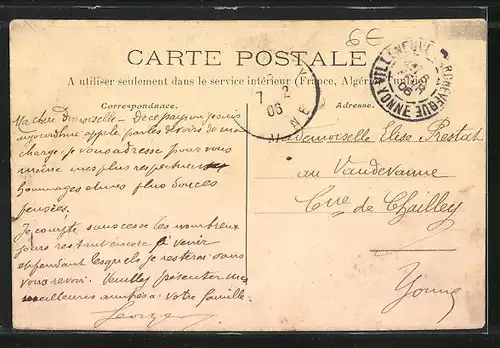 6€
CARTE POSTALE
A utiliser seulement dans le service intérieur (France, Algérie, Tunisie)
Correspondance.
Adresse.
VILLENEUVE L'ARCHEVEQUE
YONNE
06
7 2
06
NE
Ma chère Demoiselle - De ce pays où je suis
aujourd'hui appelé par les devoirs de ma
charge, je vous adresse pour vous
même mes plus respectueux
hommages et mes plus douces
pensées.
Je compte sans cesse les nombreux
jours restant encore à venir
et pendant lesquels je resterai sans
vous revoir. Veuillez présenter mes
meilleures amitiés à votre famille.
Georges
Mademoiselle Elisa Prestat
au Vaudevanne
Cne de Chailley
Yonne